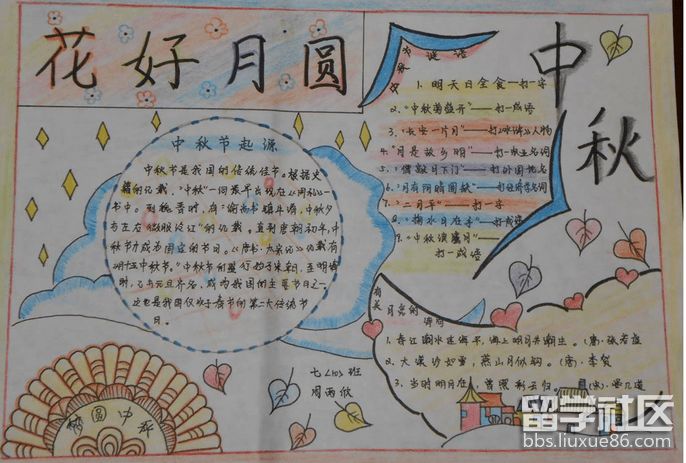 花好月圆
中秋
中秋节起源
中秋节是我国的传统佳节。根据史
籍的记载,"中秋"一词最早出现在《周礼》一
书中。到魏晋时,有"谕尚书镇牛渚,中秋夕
与左右微服泛江"的记载。直到唐朝初年,中
秋节才成为固定的节日。《唐书·太宗记》记载有
"八月十五中秋节"。中秋节的盛行始于宋朝,至明清
时,已与元旦齐名,成为我国的主要节日之一
这也是我国仅次于春节的第二大传统节
日。
谜语
1. 明天日全食—打一字
2. "中秋菊盛开"——打一成语
3. "长安一片月"——打《水浒》人物
4. "月是故乡明"——打一
5. "僧敲月下门"——打外国地名
6. "月有阴晴圆缺"——打经济学名词
7. "二月平"——打一字
8. "掬水月在手"——打成语
9. "中秋
打一成语
有关月亮的诗句
1. 春江潮水连海平,海上明月共潮生。(唐)张若虚
2. 大漠沙如雪,燕山月似钩。(唐)李贺
3. 当时明月在,曾照彩云归。(宋)晏几道
七(10)班
周雨欣
梦圆中秋
留学社区
bbs.liuxue86.com